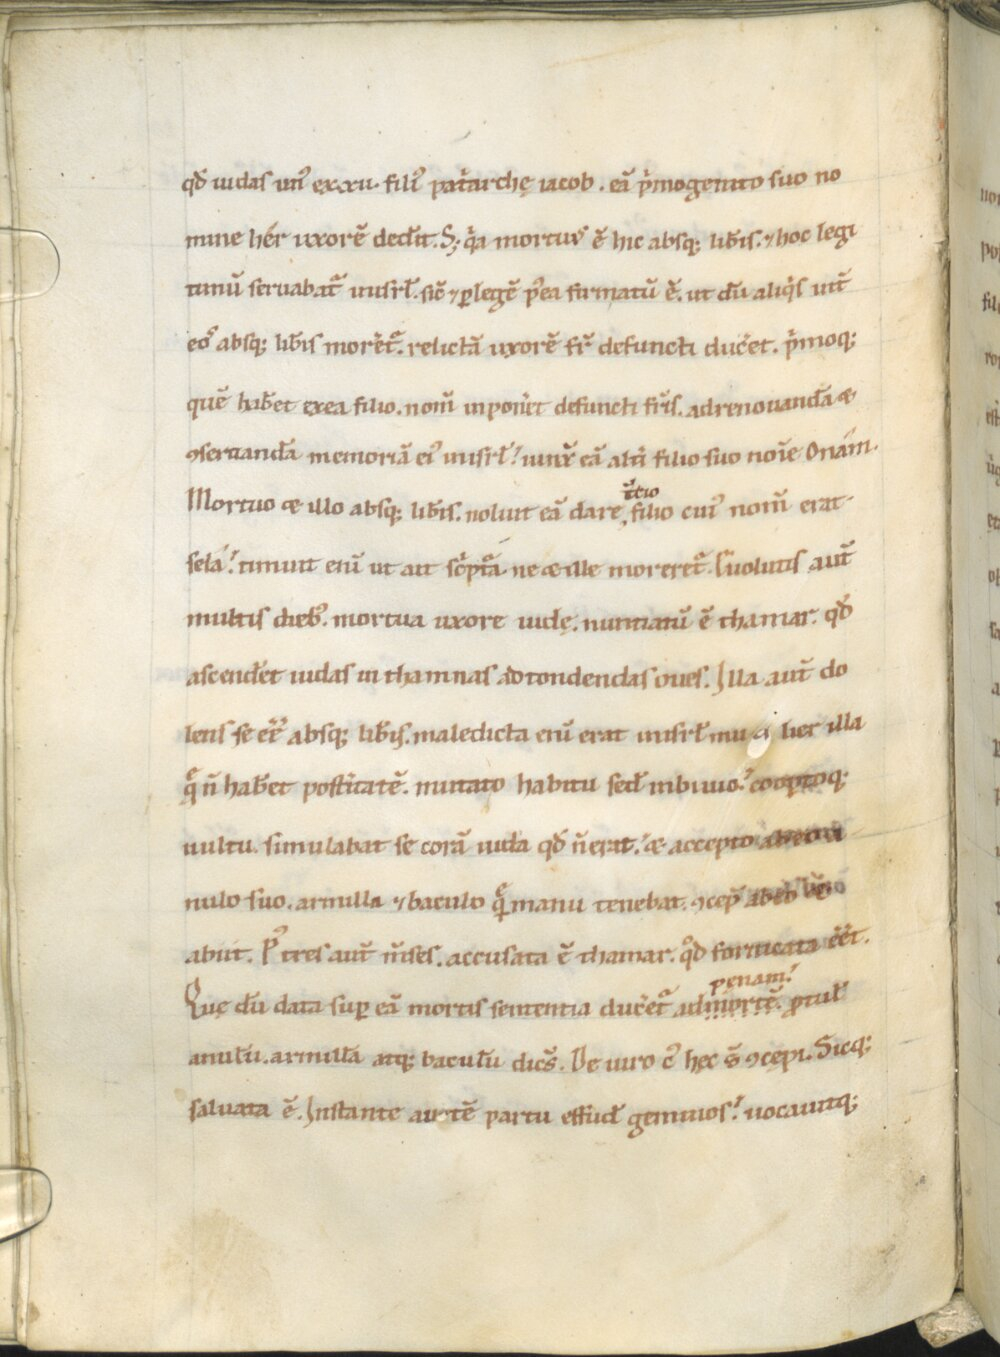 qđ iudas un᷒ exxii. fili᷒ patͥarchę iacob. eā pͥmogenito suo no
mine hér uxorē dedit. S; qͥa mortuus ē hic absq; lib̄is. & hoc legi
timū seruabat᷑ in isrł. sic̄ & ꝑ legē pᷤea firmatū ē. ut dū aliqͥs int̄
eos absq; lib̄is moreret᷑. relictā uxorē fr̄ defuncti duceret. pͥmoq;
quē hab̄et ex ea filio. nom̄ inponeret defuncti fr̄is. ad renouandā æ
ꝯseruandā memoriā ei᷒ in isrł. iunx̄ eā alt̄i filio suo noīe Onám.
Mortuo æ illo absq; lib̄is. noluit eā dare t̄cio filio cui᷒ nom̄ erat
selá. timuit enī ut ait scͥptᷓa. ne æ ille moreret᷑. Euolutis aut̄
multis dieb᷒. mortua uxore iudę. nuntiatū ē thamar. qđ
ascenderet iudas in thamnas ad tondendas oues. Illa aut̄ do
lens se ēē absq; lib̄is. maledicta enī erat in isrł mulier illa
quę n̄ hab̄et post̄itatē. mutato habitu sedit in biuio. coopertoq;
uultu. simulabat se corā iuda qđ n̄ erat. æ accepto ab eo a
nulo suo. armilla & baculo quē manu tenebat. ꝯcep̄ ab eo
abiit. P᷒ tres aut̄ m̄ses. accusata ē thamar. qđ fornicata eēt.
Quę dū data sup eā mortis sententia duceret᷑ ad mortē penam. ꝓtulit
anulū. armillā atq; baculū dicēs. De uiro cui᷒ hęc s̄ ꝯcepi. Sicq;
saluata ē. Instante autē partu effudit geminos. uocauitq;